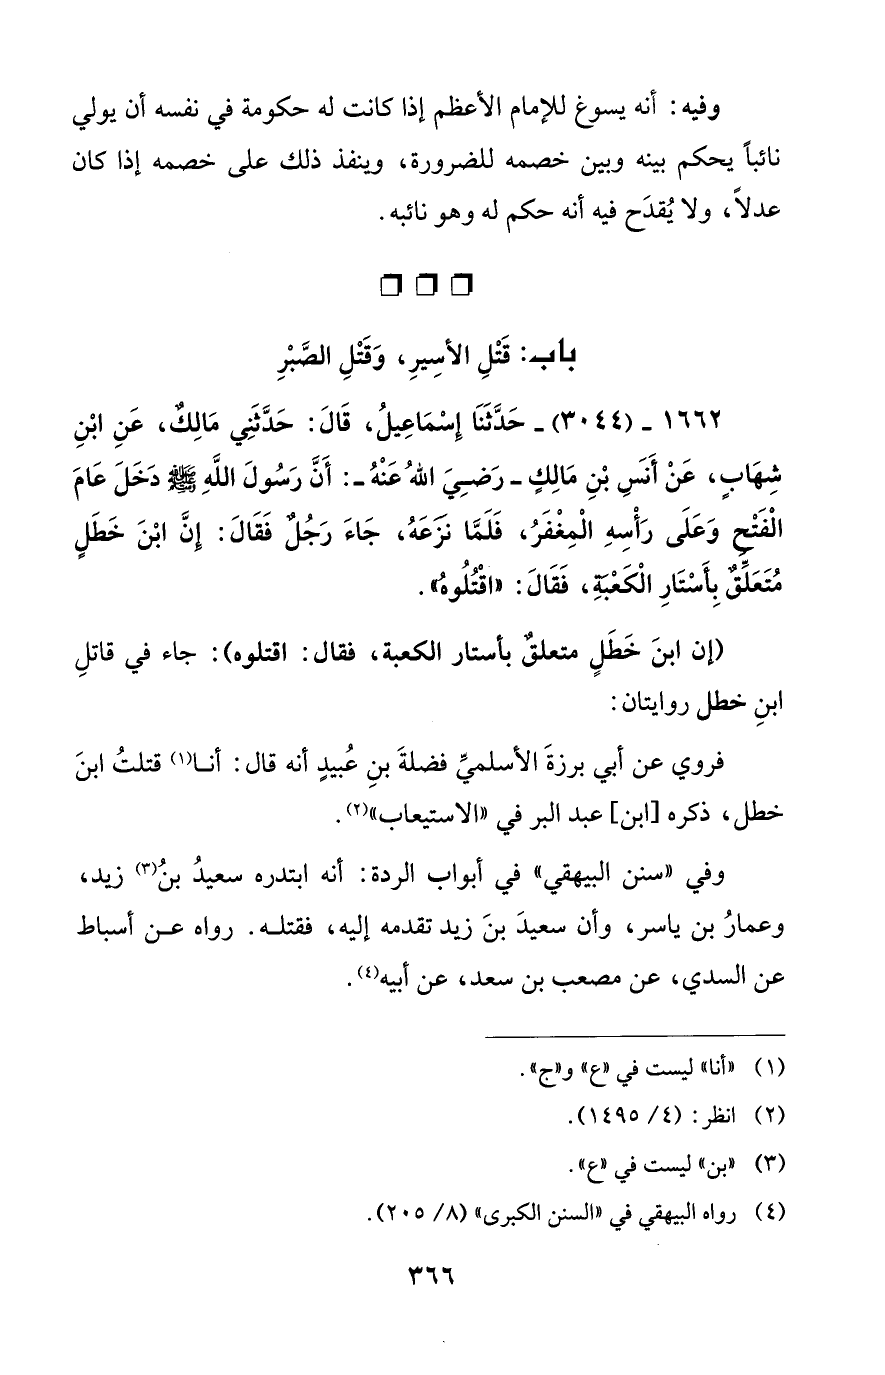 وفيه: أنه يسوغ للإمام الأعظم إذا كانت له حكومة في نفسه أن يولي
نائباً يحكم بينه وبين خصمه للضرورة، وينفذ ذلك على خصمه إذا كان
عدلاً، ولا يُقدَح فيه أنه حكم له وهو نائبه.
باب: قَتْلِ الأسِيرِ، وَقَتْلِ الصَّبْرِ
١٦٦٢ ـ (٣٠٤٤) ـ حَدَّثَنَا إِسْمَاعِيلُ، قَالَ: حَدَّثَنِي مَالِكٌ، عَنِ ابْنِ
شِهَابٍ، عَنْ أَنَسِ بْنِ مَالِكٍ ـ رَضِيَ اللهُ عَنْهُ ـ: أَنَّ رَسُولَ اللَّهِ ﷺ دَخَلَ عَامَ
الْفَتْحِ وَعَلَى رَأْسِهِ الْمِغْفَرُ، فَلَمَّا نَزَعَهُ، جَاءَ رَجُلٌ فَقَالَ: إِنَّ ابْنَ خَطَلٍ
مُتَعَلِّقٌ بِأَسْتَارِ الْكَعْبَةِ، فَقَالَ: «اقْتُلُوهُ».
(إن ابنَ خَطَلٍ متعلقٌ بأستار الكعبة، فقال: اقتلوه): جاء في قاتلِ
ابنِ خطل روايتان:
فروي عن أبي برزةَ الأسلميِّ فضلةَ بنِ عُبيدٍ أنه قال: أنا(١) قتلتُ ابنَ
خطل، ذكره [ابن] عبد البر في «الاستيعاب»(٢).
وفي «سنن البيهقي» في أبواب الردة: أنه ابتدره سعيدُ بنُ(٣) زيد،
وعمارُ بن ياسر، وأن سعيدَ بنَ زيد تقدمه إليه، فقتله. رواه عن أسباط
عن السدي، عن مصعب بن سعد، عن أبيه(٤).
(١) «أنا» ليست في «ع» و«ج».
(٢) انظر: (٤/ ١٤٩٥).
(٣) «بن» ليست في «ع».
(٤) رواه البيهقي في «السنن الكبرى» (٨/ ٢٠٥).
٣٦٦